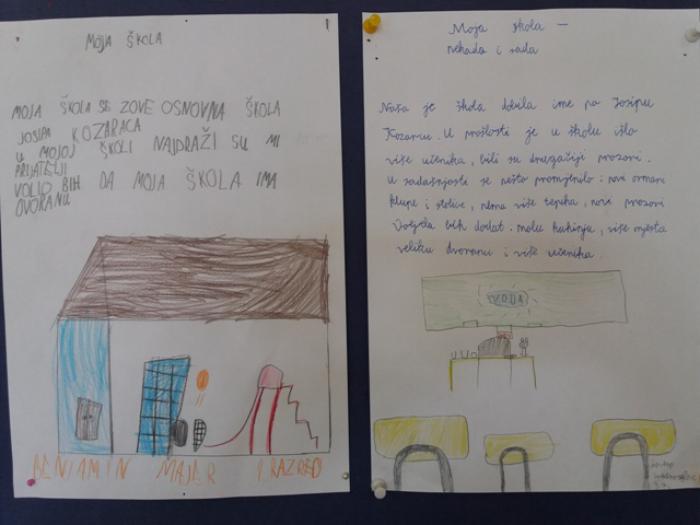 MOJA ŠKOLA
MOJA ŠKOLA SE ZOVE OSNOVNA ŠKOLA
JOSIPA KOZARACA
U MOJOJ ŠKOLI NAJDRAŽI SU MI
PRIJATELJI
VOLIO BIH DA MOJA ŠKOLA IMA
DVORANU
BENJAMIN MAJER I RAZRED
Moja škola –
nekada i sada
Naša je škola dobila ime po Josipu
Kozarcu. U prošlosti je u školu išlo
više učenika, bili su drugačiji prozori.
U sadašnjosti se nešto promjenilo: novi ormari
klupe i stolice, nema više tepiha, novi prozori
Voljela bih dodat malu kuhinju, više mjesta
veliku dvoranu i više učenika.
VODA